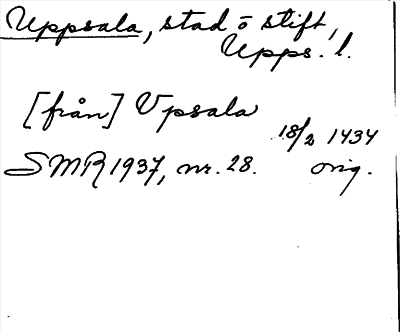 Uppsala, stad ō stift,
Upps. l.
[från] Vpsala
18/2 1434
SMR 1937, nr. 28. orig.